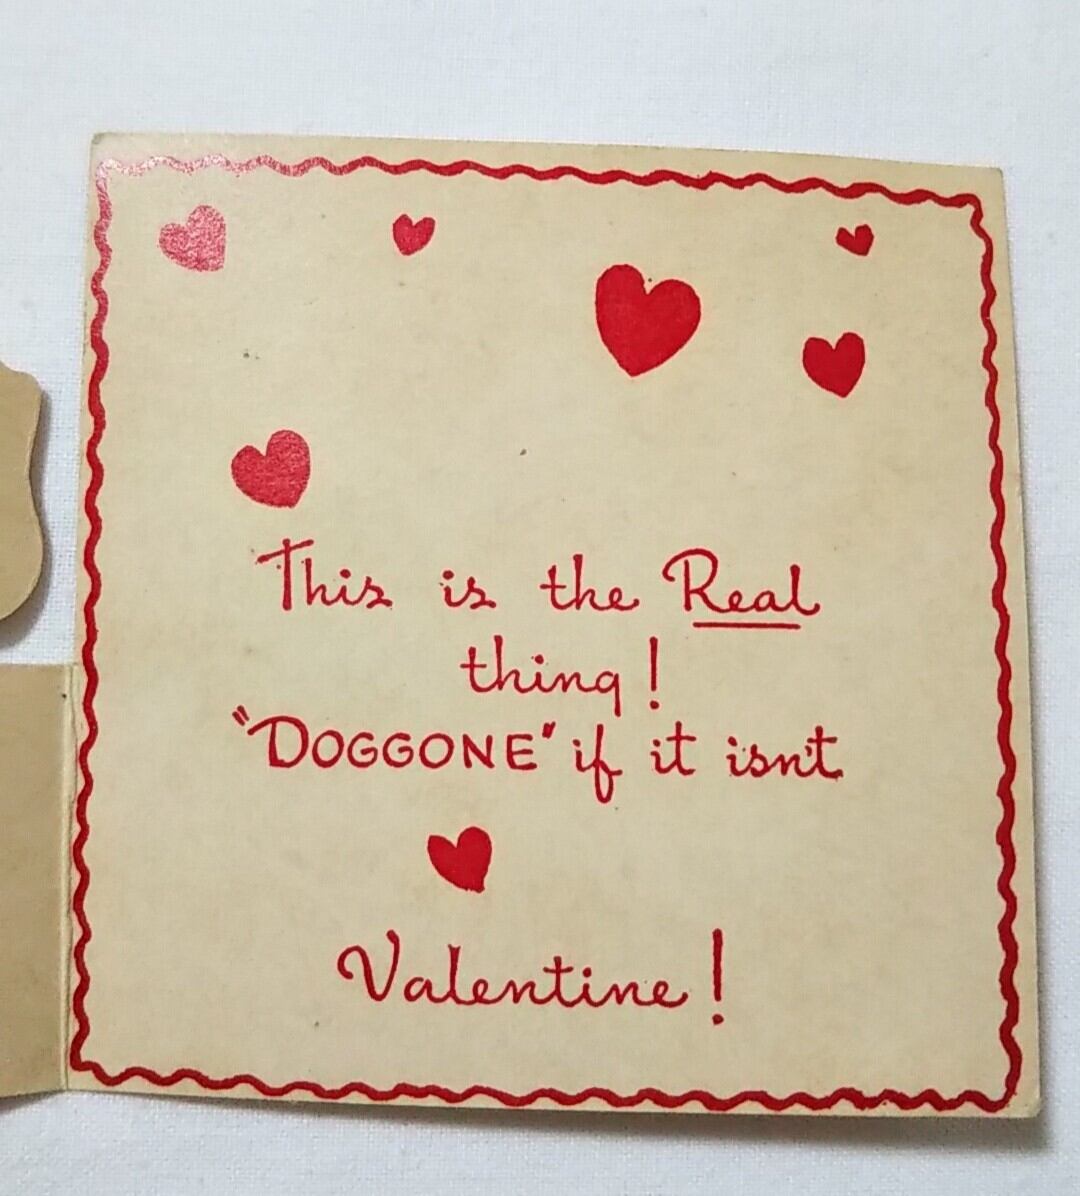 This is the Real
thing!
"DOGGONE" if it isn't
Valentine!